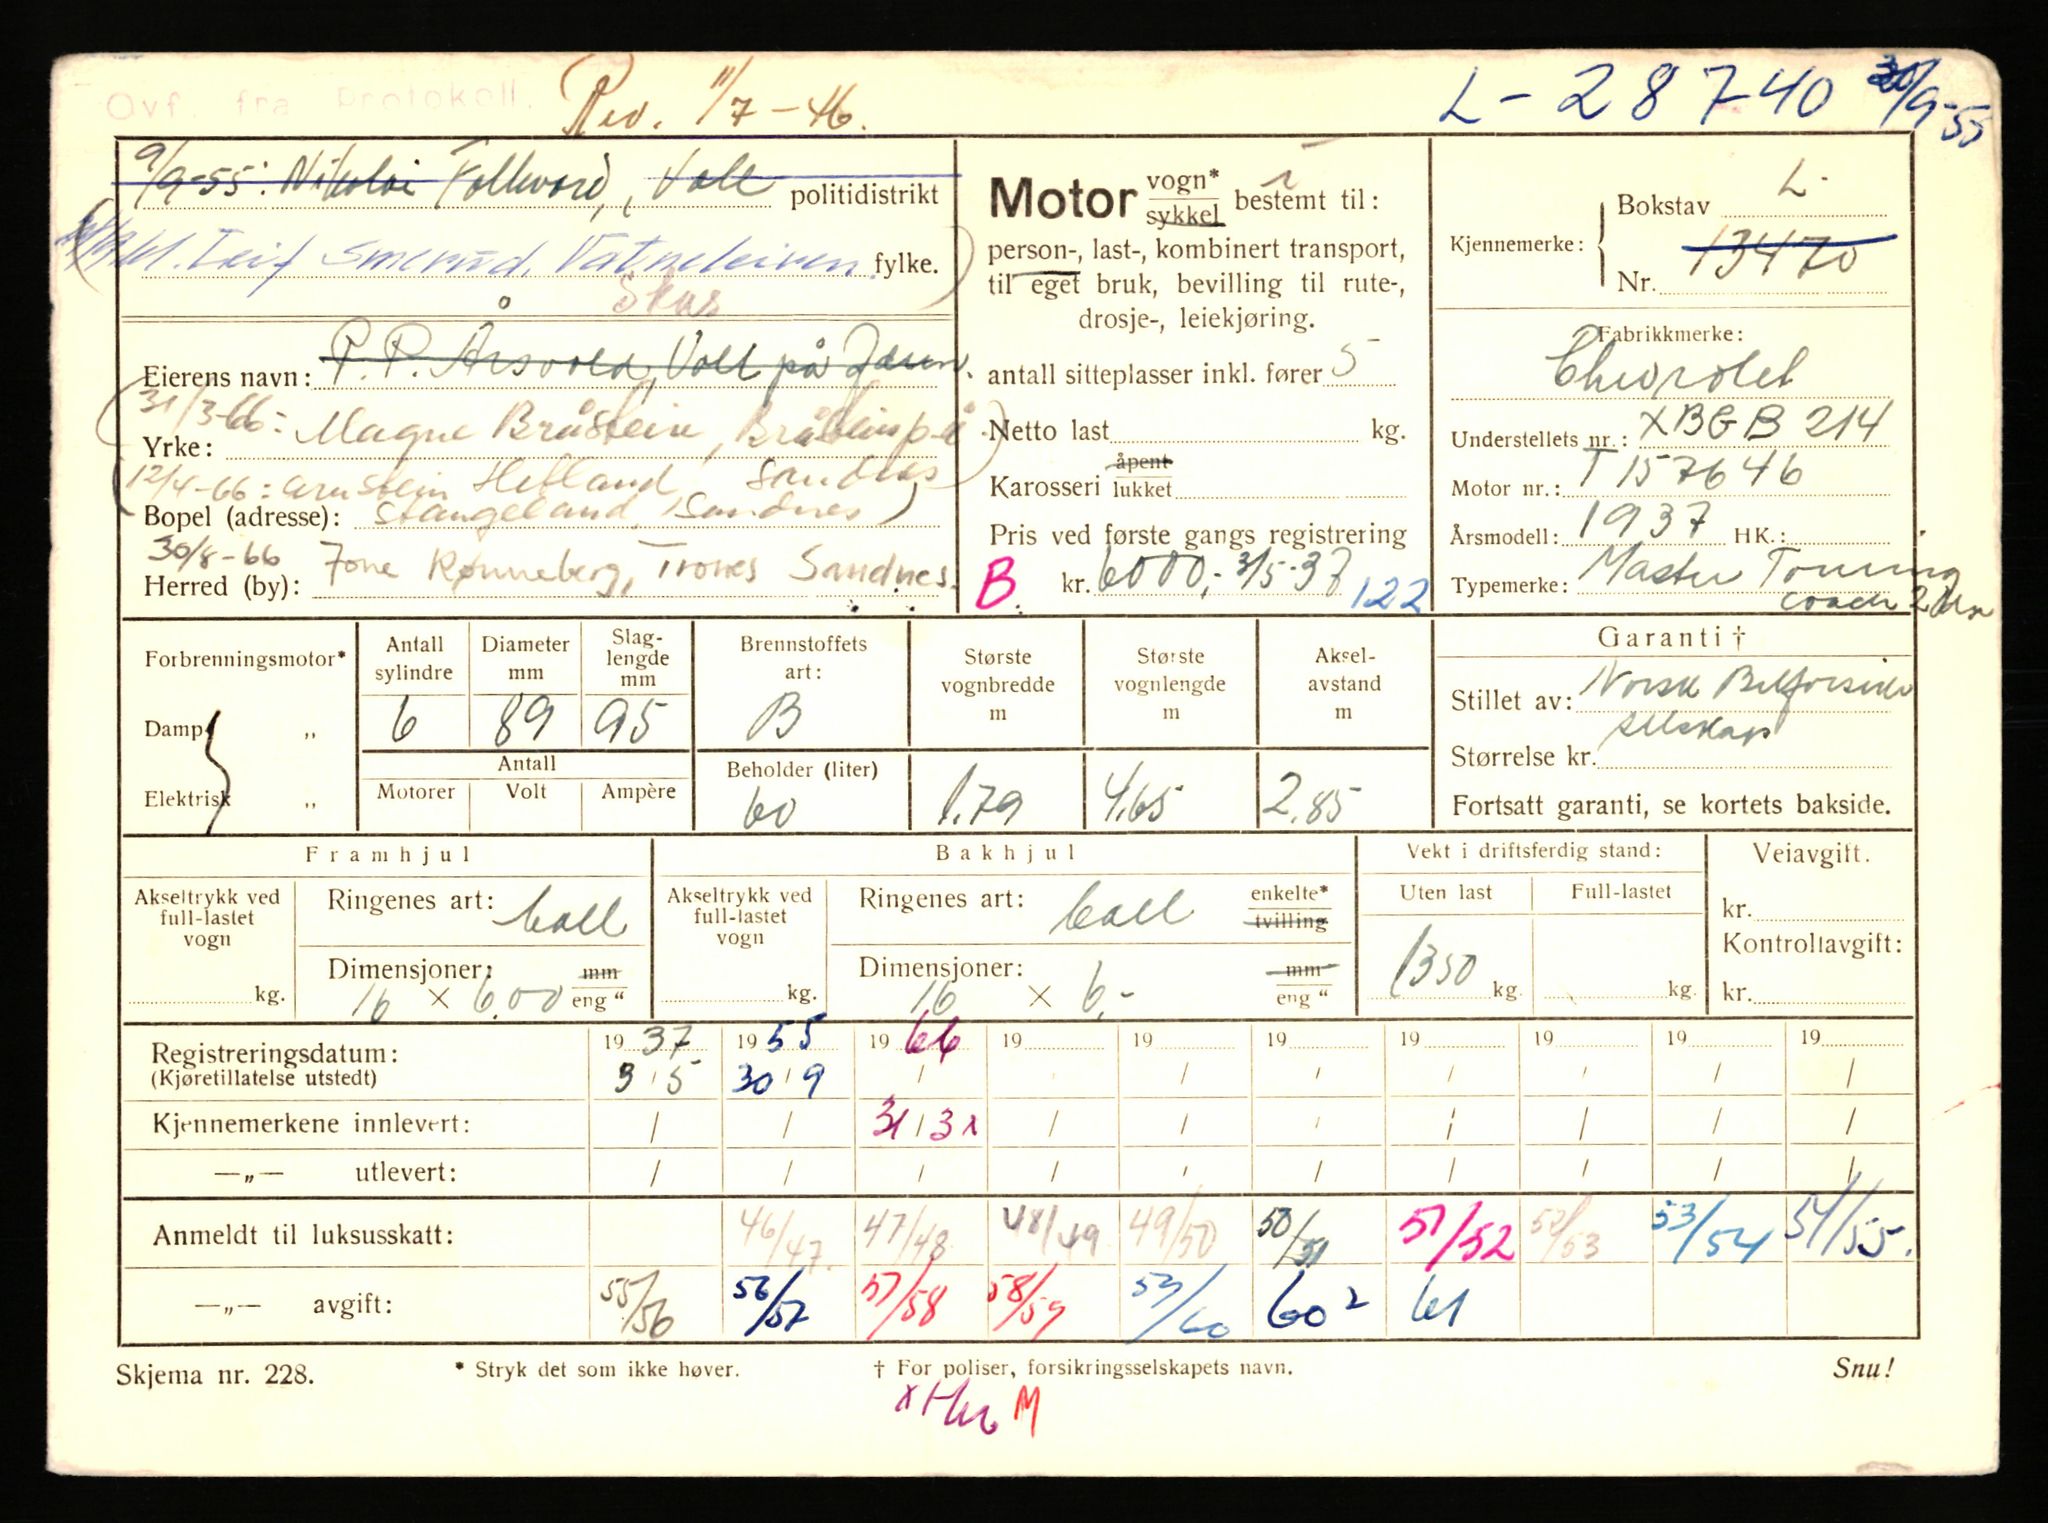 Ovf. fra Protokoll.
Rev. 11/7-46.
L-28740 30/9-55
9/9-55: Nikolai Folkvord, Voll politidistrikt
Leif Smerud, Vatneleiren. fylke.
Skus
Eierens navn: P. P. Årsvold, Voll på Jæren.
31/3-66: Magne Bråstein, Bråstein p.å.
Yrke:
Sandnes
12/4-66: Arnstein Helland
Bopel (adresse): Stangeland, Sandnes
30/8-66 Jone Rønneberg, Trones Sandnes.
Herred (by):
Motor vogn* sykkel bestemt til:
person-, last-, kombinert transport,
til eget bruk, bevilling til rute-,
drosje-, leiekjøring.
antall sitteplasser inkl. fører 5
Netto last kg.
Karosseri åpent lukket
Pris ved første gangs registrering
B. kr. 6000,- 3/5-37 122
Kjennemerke: Bokstav L-
Nr. 13470
Fabrikkmerke:
Chevrolet
Understellets nr.: XBGB 214
Motor nr.: T157646
Årsmodell: 1937 HK.:
Typemerke: Master Touring
coach 2 dör
Forbrenningsmotor*
Damp „
Elektrisk „
Antall sylindre 6
Diameter mm 89
Slag-lengde mm 95
Antall
Motorer Volt Ampère
Brennstoffets art: B
Beholder (liter) 60
Største vognbredde m 1.79
Største vognlengde m 4,65
Aksel-avstand m 2.85
Garanti †
Stillet av: Norsk Bilforsikr
selskap
Størrelse kr.
Fortsatt garanti, se kortets bakside.
Framhjul
Akseltrykk ved full-lastet vogn kg.
Ringenes art: ball
Dimensjoner: mm eng “
16 × 6,00
Bakhjul
Akseltrykk ved full-lastet vogn kg.
Ringenes art: ball enkelte* tvilling
Dimensjoner: mm eng “
16 × 6,-
Vekt i driftsferdig stand:
Uten last Full-lastet
1350 kg. kg.
Veiavgift.
kr.
Kontrollavgift:
kr.
Registreringsdatum: 19 37 19 55 19 66 19 19 19 19 19 19 19
(Kjøretillatelse utstedt) 3/5 30/9 / / / / / / /
Kjennemerkene innlevert: / / 31/3 x / / / / / / /
—„— utlevert: / / / / / / / / / /
Anmeldt til luksusskatt: 46/47. 47/48 48/49 49/50 50/51 51/52 52/53 53/54 54/55.
—„— avgift: 55/56 56/57 57/58 58/59 59/60 60² 61
Skjema nr. 228.
* Stryk det som ikke høver.
† For poliser, forsikringsselskapets navn.
Snu!
M